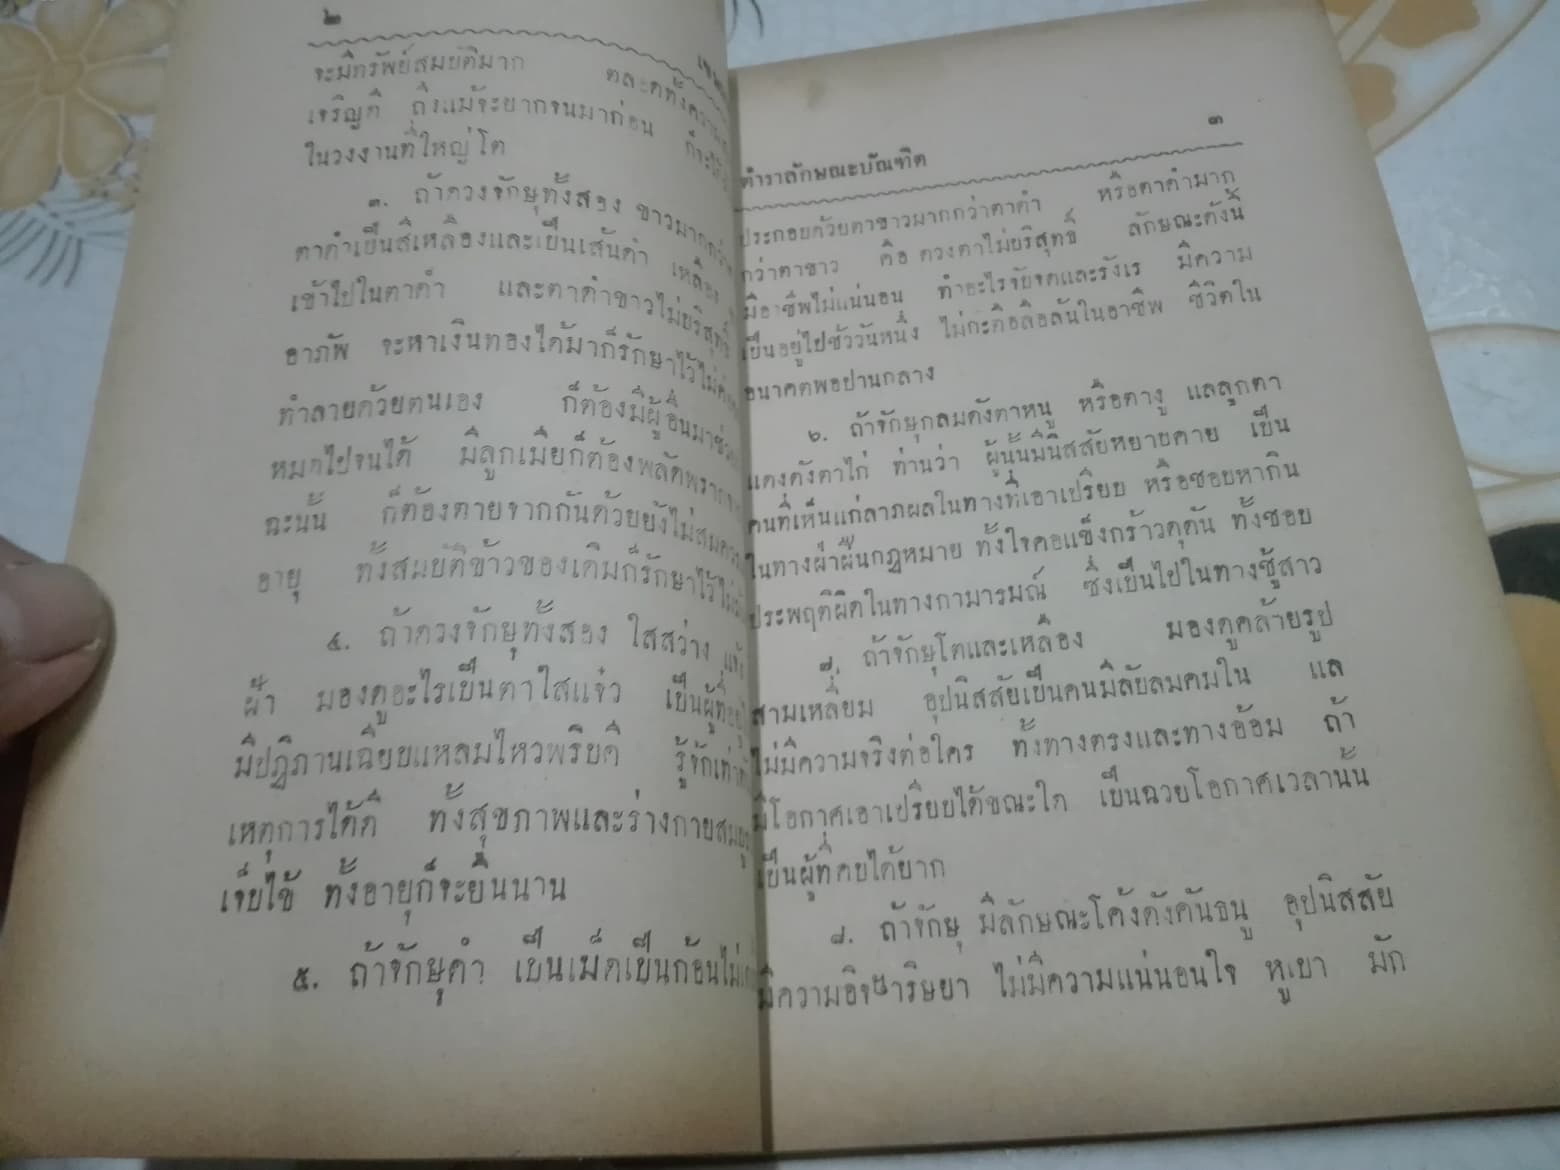 ๒
จะมีทรัพย์สมบัติมาก ตลอดทั้งความ
เจริญดี ถึงแม้จะยากจนมาก่อน ก็จะได้
ในวงงานที่ใหญ่โต
๓. ถ้าดวงจักษุทั้งสอง ขาวมากกว่า
ตาดำเป็นสีเหลืองและเป็นเส้นดำ เหลือง
เข้าไปในตาดำ และตาดำขาวไม่บริสุทธิ์
อาภัพ จะหาเงินทองได้มาก็รักษาไว้ไม่
ทำลายด้วยตนเอง ก็ต้องมีผู้อื่นมาช่วย
หมดไปจนได้ มีลูกเมียก็ต้องพลัดพราก
ฉะนั้น ก็ต้องตายจากกันด้วยยังไม่สมควร
อายุ ทั้งสมบัติข้าวของเดิมก็รักษาไว้ไม่
๔. ถ้าดวงจักษุทั้งสอง ใสสว่าง
ฝ้า มองดูอะไรเป็นตาใสแจ๋ว เป็นผู้ที่
มีปฏิภานเฉียบแหลมไหวพริบดี รู้จักเท่า
เหตุการได้ดี ทั้งสุขภาพและร่างกาย
เจ็บไข้ ทั้งอายุก็จะยืนนาน
๕. ถ้าจักษุดำ เป็นเม็ดเป็นก้อน
๓
ตำราลักษณะบัณฑิต
ประกอบด้วยตาขาวมากกว่าตาดำ หรือตาดำมาก
กว่าตาขาว คือ ดวงตาไม่บริสุทธิ์ ลักษณะดังนี้
มีอาชีพไม่แน่นอน ทำอะไรจับจดและรังเร มีความ
เป็นอยู่ไปชั่ววันหนึ่ง ไม่กะตือลือล้นในอาชีพ ชีวิตใน
อนาคตพอปานกลาง
๖. ถ้าจักษุกลมดังตาหนู หรือตางู แลลูกตา
แดงดังตาไก่ ท่านว่า ผู้นั้นมีนิสสัยหยาบคาย เป็น
คนที่เห็นแก่ลาภผลในทางที่เอาเปรียบ หรือชอบหากิน
ในทางฝ่าฝืนกฎหมาย ทั้งใจคอแข็งกร้าวดุดัน ทั้งชอบ
ประพฤติผิดในทางกามารมณ์ ซึ่งเป็นไปในทางชู้สาว
๗. ถ้าจักษุโตและเหลือง มองดูคล้ายรูป
สามเหลี่ยม อุปนิสสัยเป็นคนมีลับลมคมใน แล
ไม่มีความจริงต่อใคร ทั้งทางตรงและทางอ้อม ถ้า
มีโอกาศเอาเปรียบได้ขณะใด เป็นฉวยโอกาศเวลานั้น
เป็นผู้ที่คบได้ยาก
๘. ถ้าจักษุ มีลักษณะโค้งดังคันธนู อุปนิสสัย
มีความอิจฉาริษยา ไม่มีความแน่นอนใจ หูเบา มัก